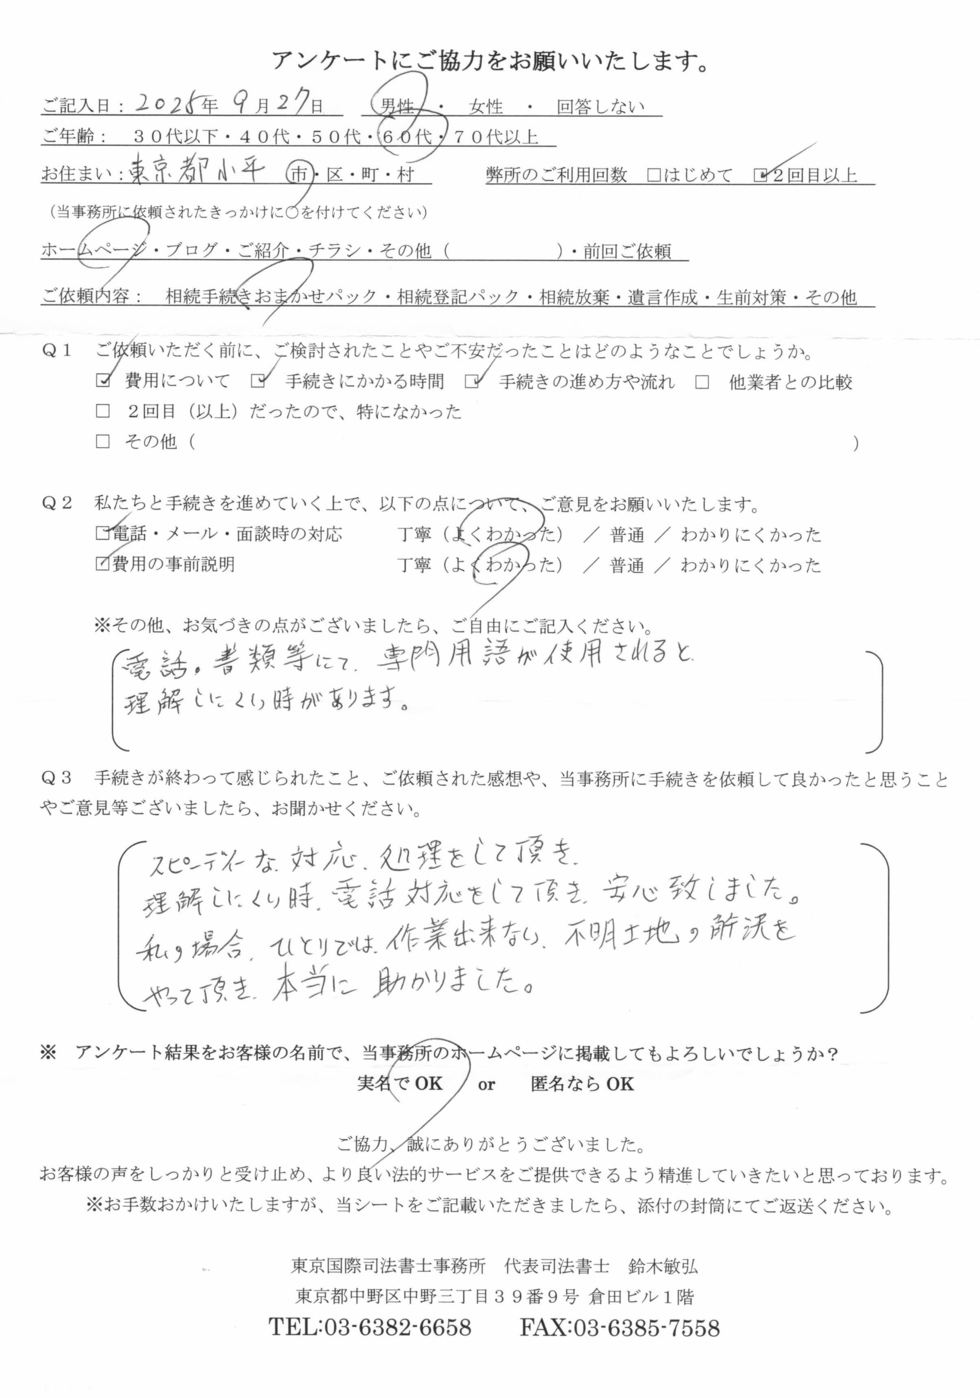 アンケートにご協力をお願いいたします。
ご記入日：2025年 9月 27日　男性 ・ 女性 ・ 回答しない
ご年齢：　30代以下・40代・50代・60代・70代以上
お住まい：東京都小平 市・区・町・村　弊所のご利用回数　□はじめて　☑2回目以上
（当事務所に依頼されたきっかけに○を付けてください）
ホームページ・ブログ・ご紹介・チラシ・その他（　　　　　　）・前回ご依頼
ご依頼内容：　相続手続きおまかせパック・相続登記パック・相続放棄・遺言作成・生前対策・その他
Q1　ご依頼いただく前に、ご検討されたことやご不安だったことはどのようなことでしょうか。
☑　費用について　☑　手続きにかかる時間　☑　手続きの進め方や流れ　□　他業者との比較
□　2回目（以上）だったので、特になかった
□　その他（　　　　　　　　　　　　　　　　　　　　　　　　　　　　　　）
Q2　私たちと手続きを進めていく上で、以下の点について、ご意見をお願いいたします。
☑電話・メール・面談時の対応　丁寧（よくわかった）　／ 普通 ／ わかりにくかった
☑費用の事前説明　丁寧（よくわかった）　／ 普通 ／ わかりにくかった
※その他、お気づきの点がございましたら、ご自由にご記入ください。
電話。書類等にて、専門用語が使用されると、
理解しにくい時があります。
Q3　手続きが終わって感じられたこと、ご依頼された感想や、当事務所に手続きを依頼して良かったと思うこと
やご意見等ございましたら、お聞かせください。
スピーディーな、対応、処理をして頂き、
理解しにくい時、電話対応をして頂き、安心致しました。
私の場合、ひとりでは、作業出来ない、不明土地の解決を
やって頂き、本当に助かりました。
※　アンケート結果をお客様の名前で、当事務所のホームページに掲載してもよろしいでしょうか？
実名で OK　or　匿名なら OK
ご協力、誠にありがとうございました。
お客様の声をしっかりと受け止め、より良い法的サービスをご提供できるよう精進していきたいと思っております。
※お手数おかけいたしますが、当シートをご記載いただきましたら、添付の封筒にてご返送ください。
東京国際司法書士事務所　代表司法書士　鈴木敏弘
東京都中野区中野三丁目39番9号 倉田ビル1階
TEL:03-6382-6658　FAX:03-6385-7558